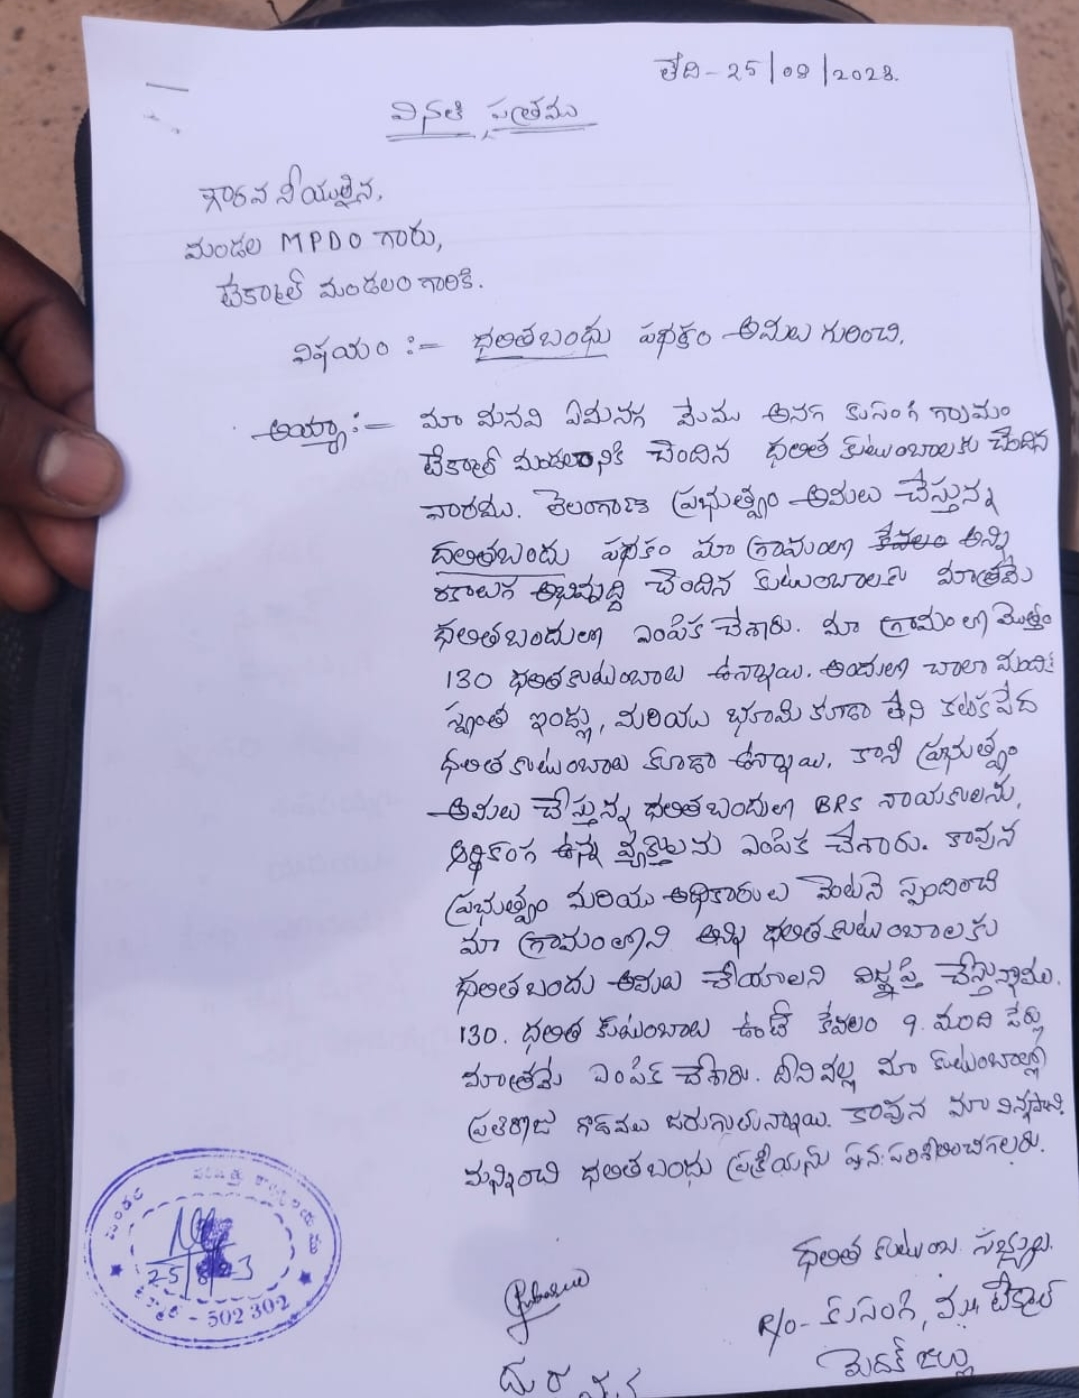 తేది - 25/08/2023.
వినతి పత్రము
గౌరవనీయులైన,
మండల MPDO గారు,
టేక్మాల్ మండలం గారికి.
విషయం :- ధలితబంధు పథకం అమలు గురించి.
అయ్యా :- మా మనవి ఏమనగ మేము అనగ కుసంగి గ్రామం
టేక్మాల్ మండలానికి చెందిన ధలిత కుటుంబాలకు చెందిన
వారము. తెలంగాణ ప్రభుత్వం అమలు చేస్తున్న
దలితబందు పథకం మా గ్రామంలో కేవలం అన్ని
రకాలుగ అభివృద్ధి చెందిన కుటుంబాలకు మాత్రమే
ధలితబందులో ఎంపిక చేశారు. మా గ్రామంలో మొత్తం
130 ధలితకుటుంబాలు ఉన్నాయి. అందులో చాలా మందికి
స్వంత ఇండ్లు, మరియు భూమి కూడా లేని కటిక పేద
ధలిత కుటుంబాలు కూడా ఉన్నాయి. కాని ప్రభుత్వం
అమలు చేస్తున్న ధలితబందులో BRS నాయకులను,
ఆర్థికంగ ఉన్న వ్యక్తులను ఎంపిక చేశారు. కావున
ప్రభుత్వం మరియు అధికారులు వెంటనె స్పందించి
మా గ్రామంలోని అన్ని ధలితకుటుంబాలకు
ధలితబందు అమలు చేయాలని విజ్ఞప్తి చేస్తున్నాము.
130. ధలిత కుటుంబాలు ఉంటే కేవలం 9. మంది పేర్లు
మాత్రమే ఎంపిక చేశారు. దీనివల్ల మా కుటుంబాల్లో
ప్రతిరోజు గొడవలు జరుగుతున్నాయి. కావున మా విన్నపాన్ని
మన్నించి ధలితబంధు ప్రక్రియను పున:పరిశీలించగలరు.
ధలిత కుటుంబ సభ్యులు.
R/o- కుసంగి, మం, టేక్మాల్
మెదక్ జిల్లా
మండల పరిషత్ కార్యాలయము
25/8/23
టేక్మాల్ - 502 302